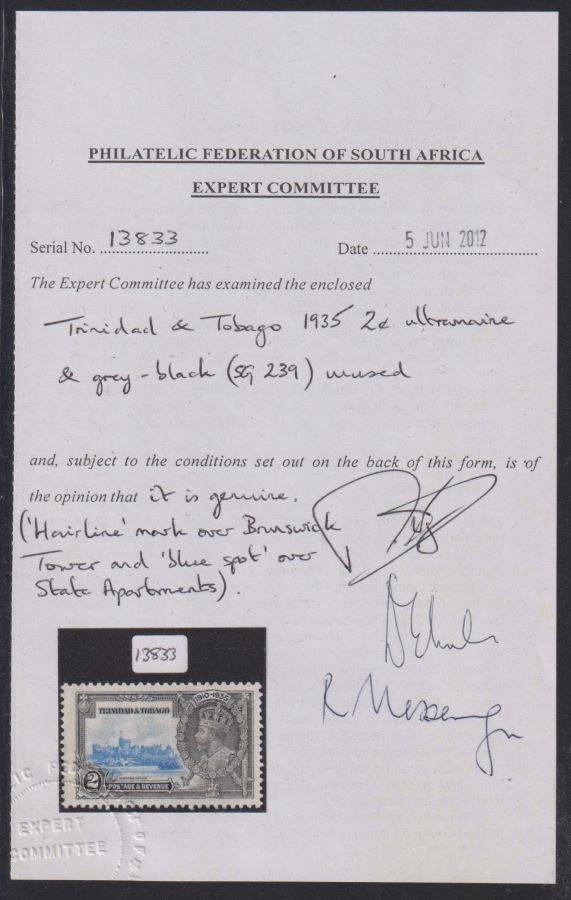 PHILATELIC FEDERATION OF SOUTH AFRICA
EXPERT COMMITTEE
Serial No. 13833 Date 5 JUN 2012
The Expert Committee has examined the enclosed
Trinidad & Tobago 1935 2c ultramarine
& grey-black (SG 239) unused
and, subject to the conditions set out on the back of this form, is of
the opinion that it is genuine.
('Hairline' mark over Brunswick
Tower and 'blue spot' over
State Apartments).
R Messenger
13833
1910-1935
TRINIDAD & TOBAGO
2
POSTAGE & REVENUE
EXPERT
COMMITTEE